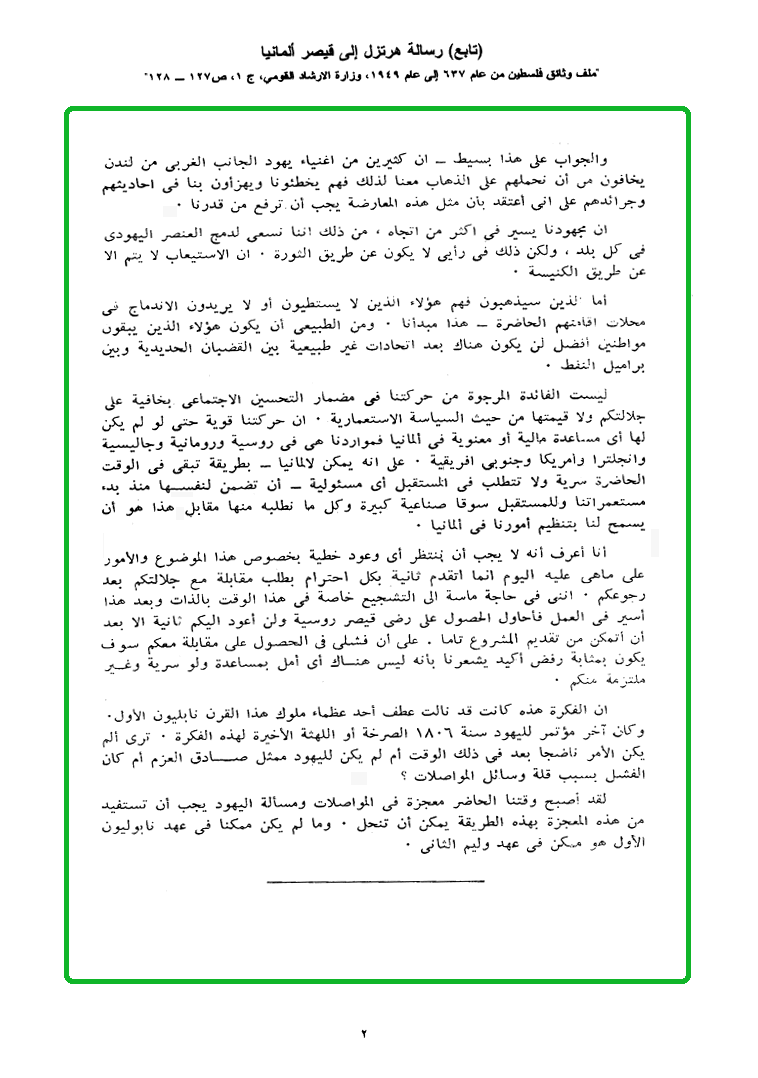 (تابع) رسالة هرتزل إلى قيصر ألمانيا
"ملف وثائق فلسطين من عام ٦٣٧ إلى عام ١٩٤٩، وزارة الارشاد القومي، ج ١، ص١٢٧ — ١٢٨"
والجواب على هذا بسيط — ان كثيرين من اغنياء يهود الجانب الغربى من لندن
يخافون من أن نحملهم على الذهاب معنا لذلك فهم يخطئونا ويهزأون بنا فى احاديثهم
وجرائدهم على انى أعتقد بأن مثل هذه المعارضة يجب أن ترفع من قدرنا ٠
ان مجهودنا يسير فى اكثر من اتجاه ، من ذلك اننا نسعى لدمج العنصر اليهودى
فى كل بلد ، ولكن ذلك فى رأيى لا يكون عن طريق الثورة ٠ ان الاستيعاب لا يتم الا
عن طريق الكنيسة ٠
أما الذين سيذهبون فهم هؤلاء الذين لا يستطيون أو لا يريدون الاندماج فى
محلات اقامتهم الحاضرة — هذا مبدأنا ٠ ومن الطبيعى أن يكون هؤلاء الذين يبقون
مواطنين أفضل لن يكون هناك بعد اتحادات غير طبيعية بين القضبان الحديدية وبين
براميل النفط ٠
ليست الفائدة المرجوة من حركتنا فى مضمار التحسين الاجتماعى بخافية على
جلالتكم ولا قيمتها من حيث السياسة الاستعمارية ٠ ان حركتنا قوية حتى لو لم يكن
لها أى مساعدة مالية أو معنوية فى ألمانيا فمواردنا هى فى روسية ورومانية وجاليسية
وانجلترا وأمريكا وجنوبى افريقية ٠ على انه يمكن لالمانيا — بطريقة تبقى فى الوقت
الحاضرة سرية ولا تتطلب فى المستقبل أى مسئولية — أن تضمن لنفسها منذ بدء
مستعمراتنا وللمستقبل سوقا صناعية كبيرة وكل ما نطلبه منها مقابل هذا هو أن
يسمح لنا بتنظيم أمورنا فى ألمانيا ٠
أنا أعرف أنه لا يجب أن ننتظر أى وعود خطية بخصوص هذا الموضوع والأمور
على ماهى عليه اليوم انما أتقدم ثانية بكل احترام بطلب مقابلة مع جلالتكم بعد
رجوعكم ٠ اننى فى حاجة ماسة الى التشجيع خاصة فى هذا الوقت بالذات وبعد هذا
أسير فى العمل فأحاول الحصول على رضى قيصر روسية ولن أعود اليكم ثانية الا بعد
أن أتمكن من تقديم المشروع تاما . على أن فشلى فى الحصول على مقابلة معكم سوف
يكون بمثابة رفض أكيد يشعرنا بأنه ليس هناك أى أمل بمساعدة ولو سرية وغير
ملتزمة منكم ٠
ان الفكرة هذه كانت قد نالت عطف أحد عظماء ملوك هذا القرن نابليون الأول.
وكان آخر مؤتمر لليهود سنة ١٨٠٦ الصرخة أو اللهثة الأخيرة لهذه الفكرة ٠ ترى ألم
يكن الأمر ناضجا بعد فى ذلك الوقت أم لم يكن لليهود ممثل صادق العزم أم كان
الفشل بسبب قلة وسائل المواصلات ؟
لقد أصبح وقتنا الحاضر معجزة فى المواصلات ومسألة اليهود يجب أن تستفيد
من هذه المعجزة بهذه الطريقة يمكن أن تنحل ٠ وما لم يكن ممكنا فى عهد نابوليون
الأول هو ممكن فى عهد وليم الثانى ٠
٢